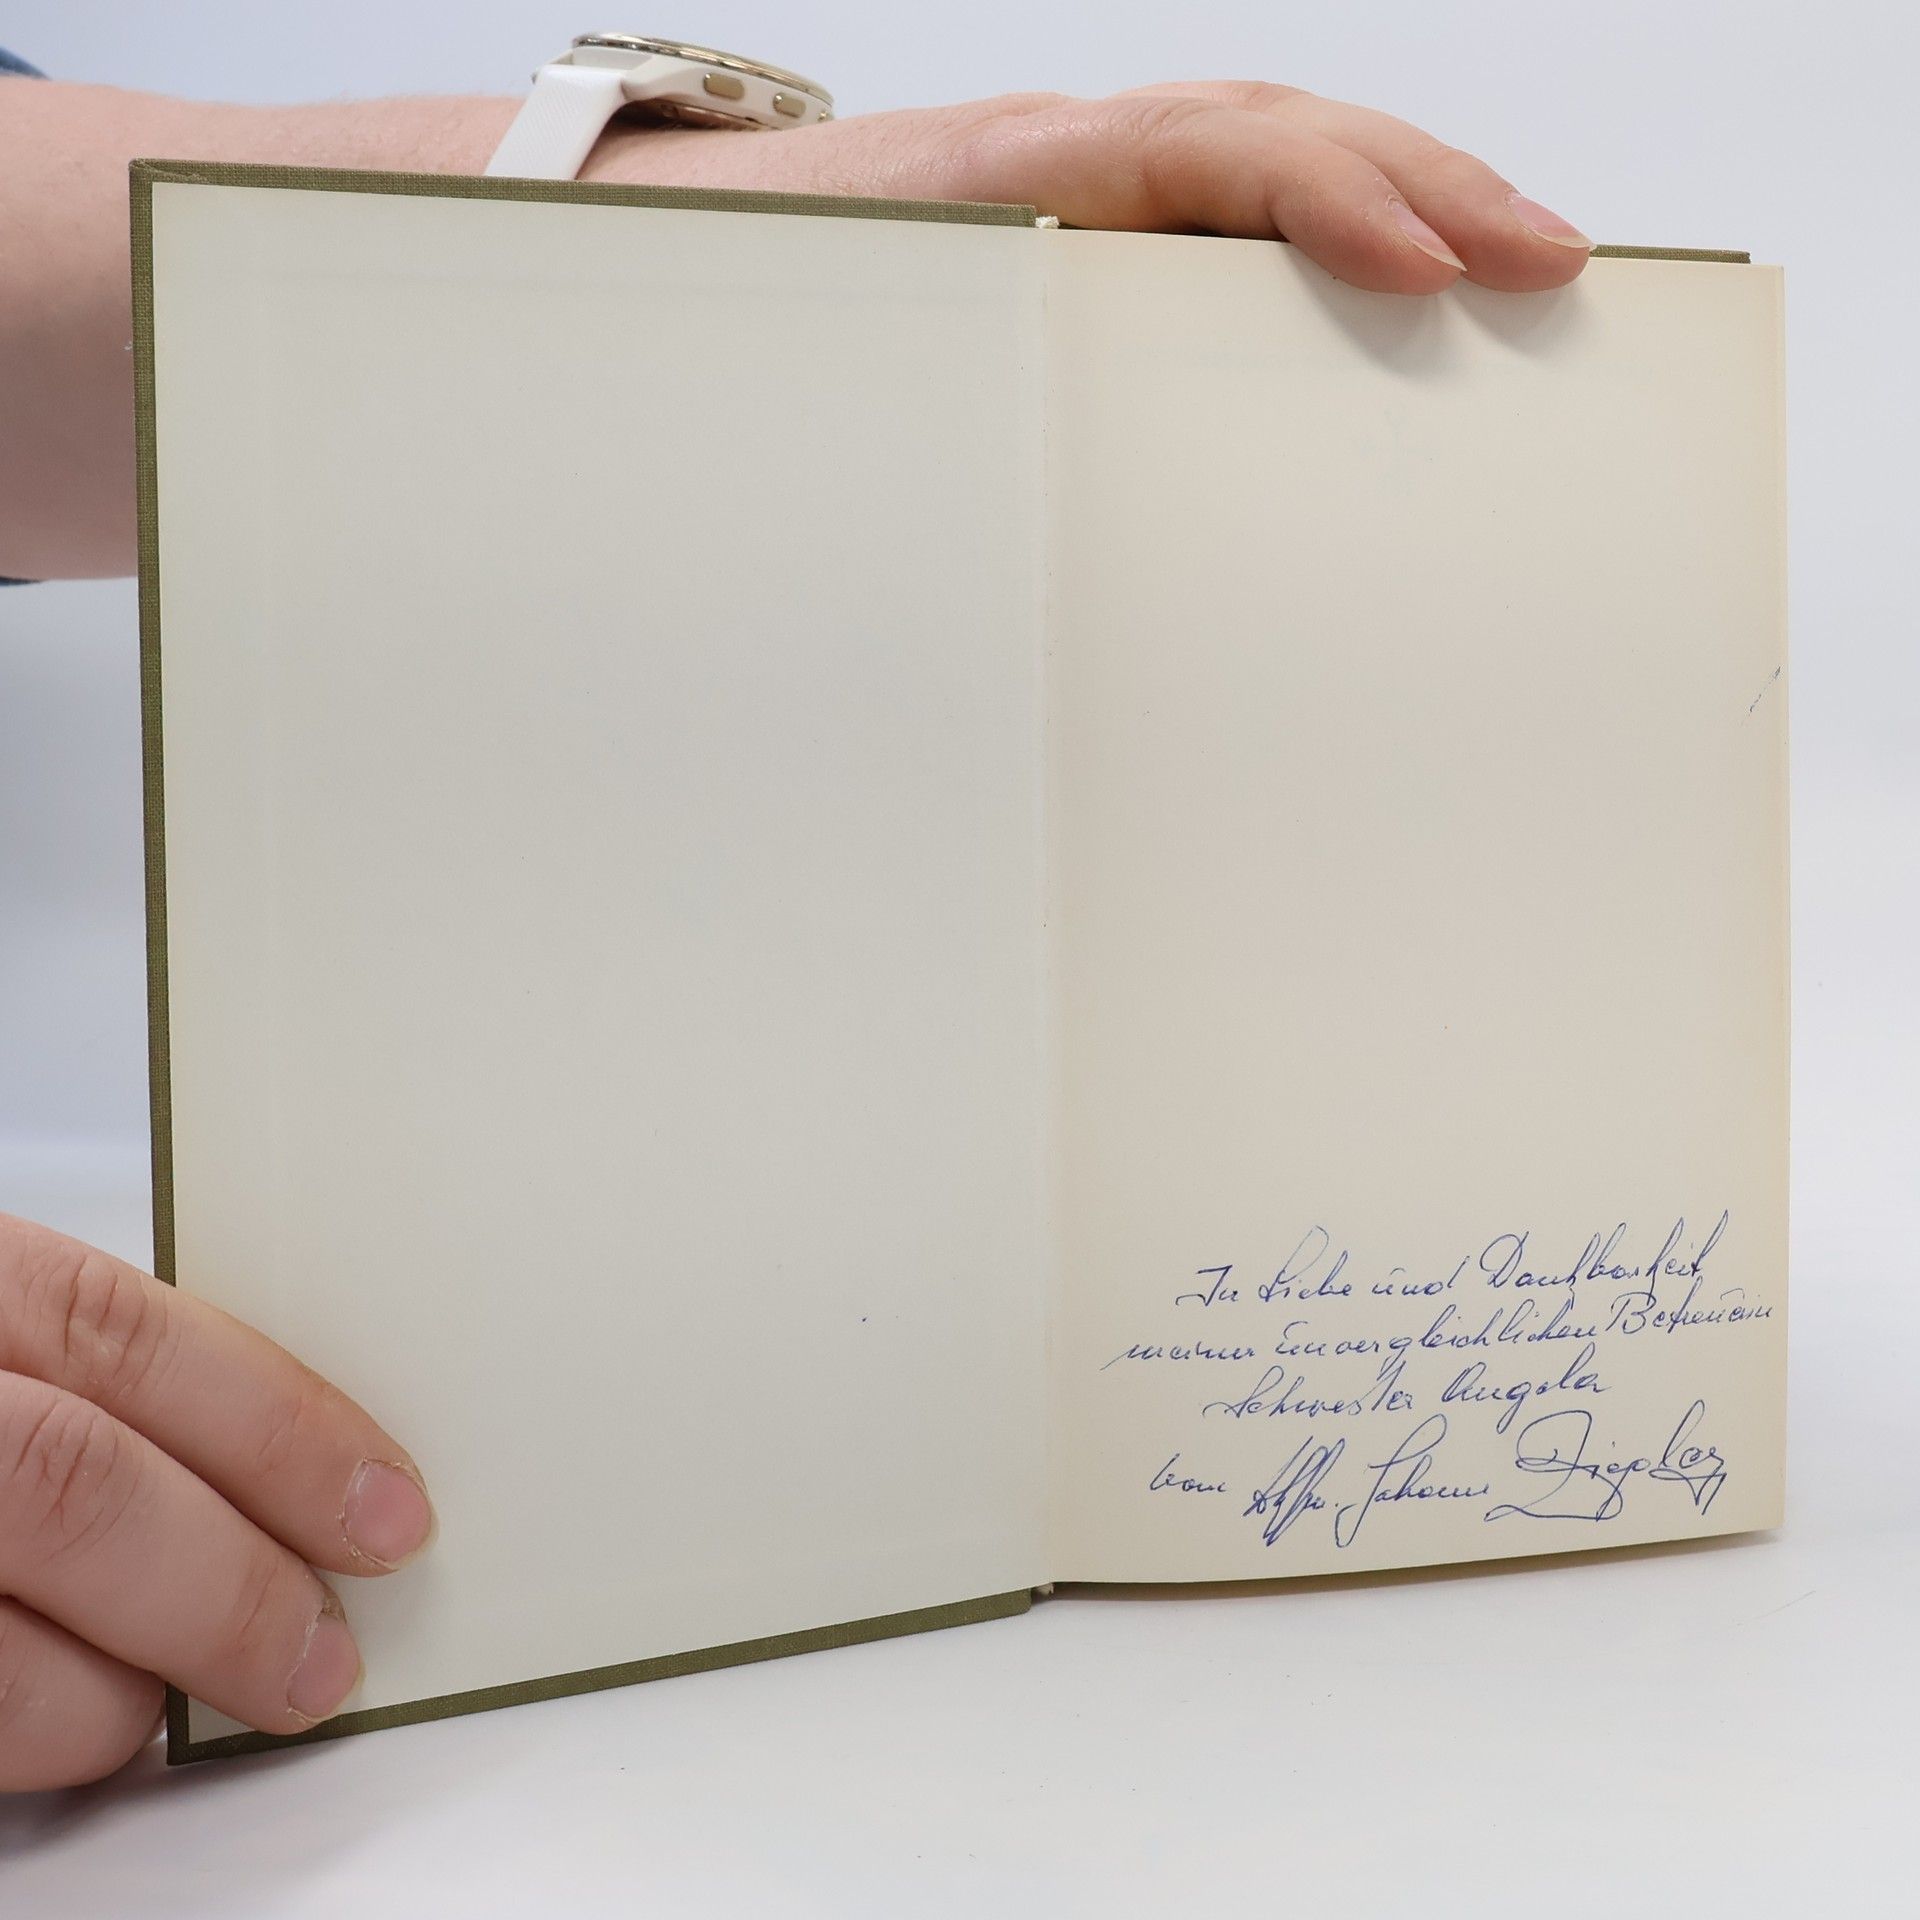 In Liebe und Dankbarkeit
meiner unvergleichlichen Betreuerin
Schwester Angela
vom Johann Ziegler